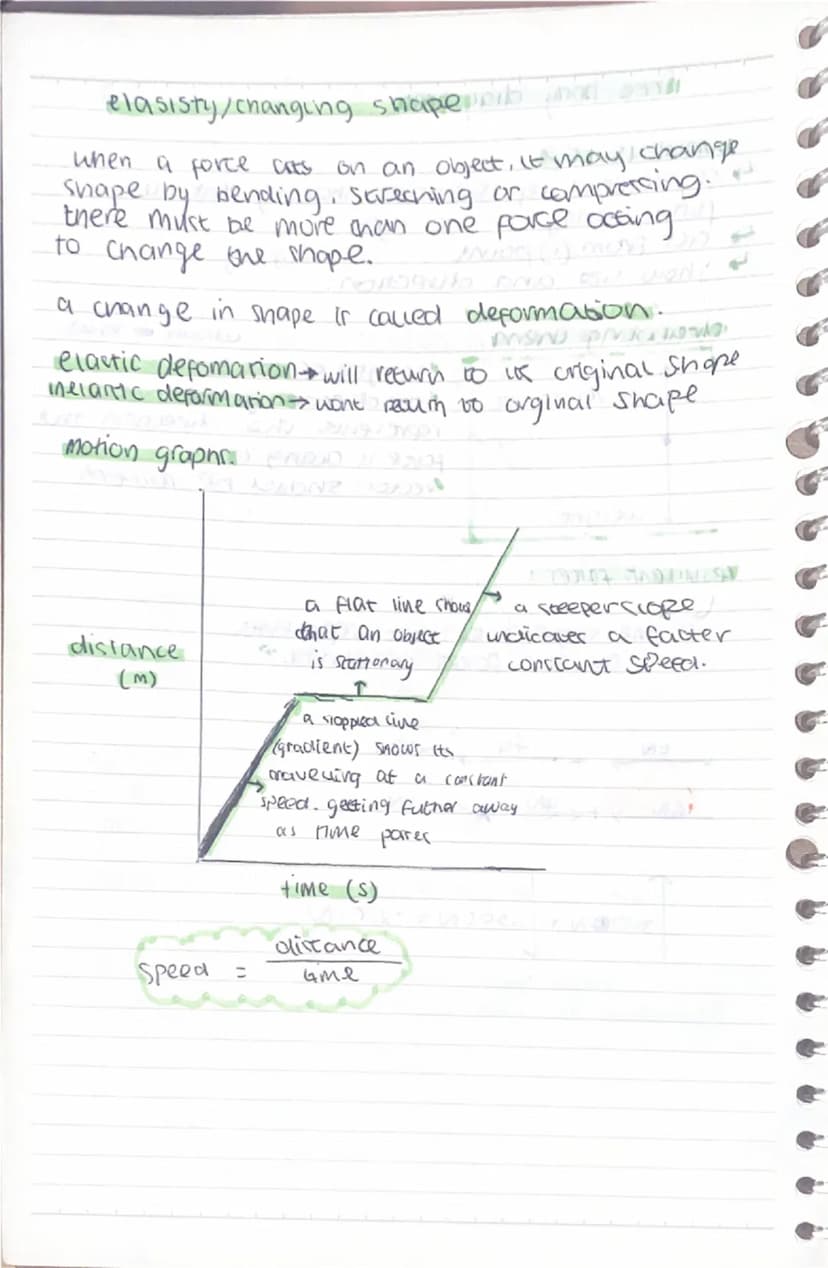 elasisty/changing shape
when a force acts on an object, it may change
shape by bending, streching or compressing.
there must be more than one force acting
to change the shape.
a change in shape is called deformation.
elastic defomation → will return to its original shape
inelastic deformation → wont return to orginal shape
motion graphs.
a flat line shows
that an object
is stationary
↑
→ a steeper slope
indicates a faster
constant speed.
distance
(m)
a slopped line
(gradient) shows its
→ traveling at a constant
speed. getting futher away
as time passes
time (s)
speed = distance
time